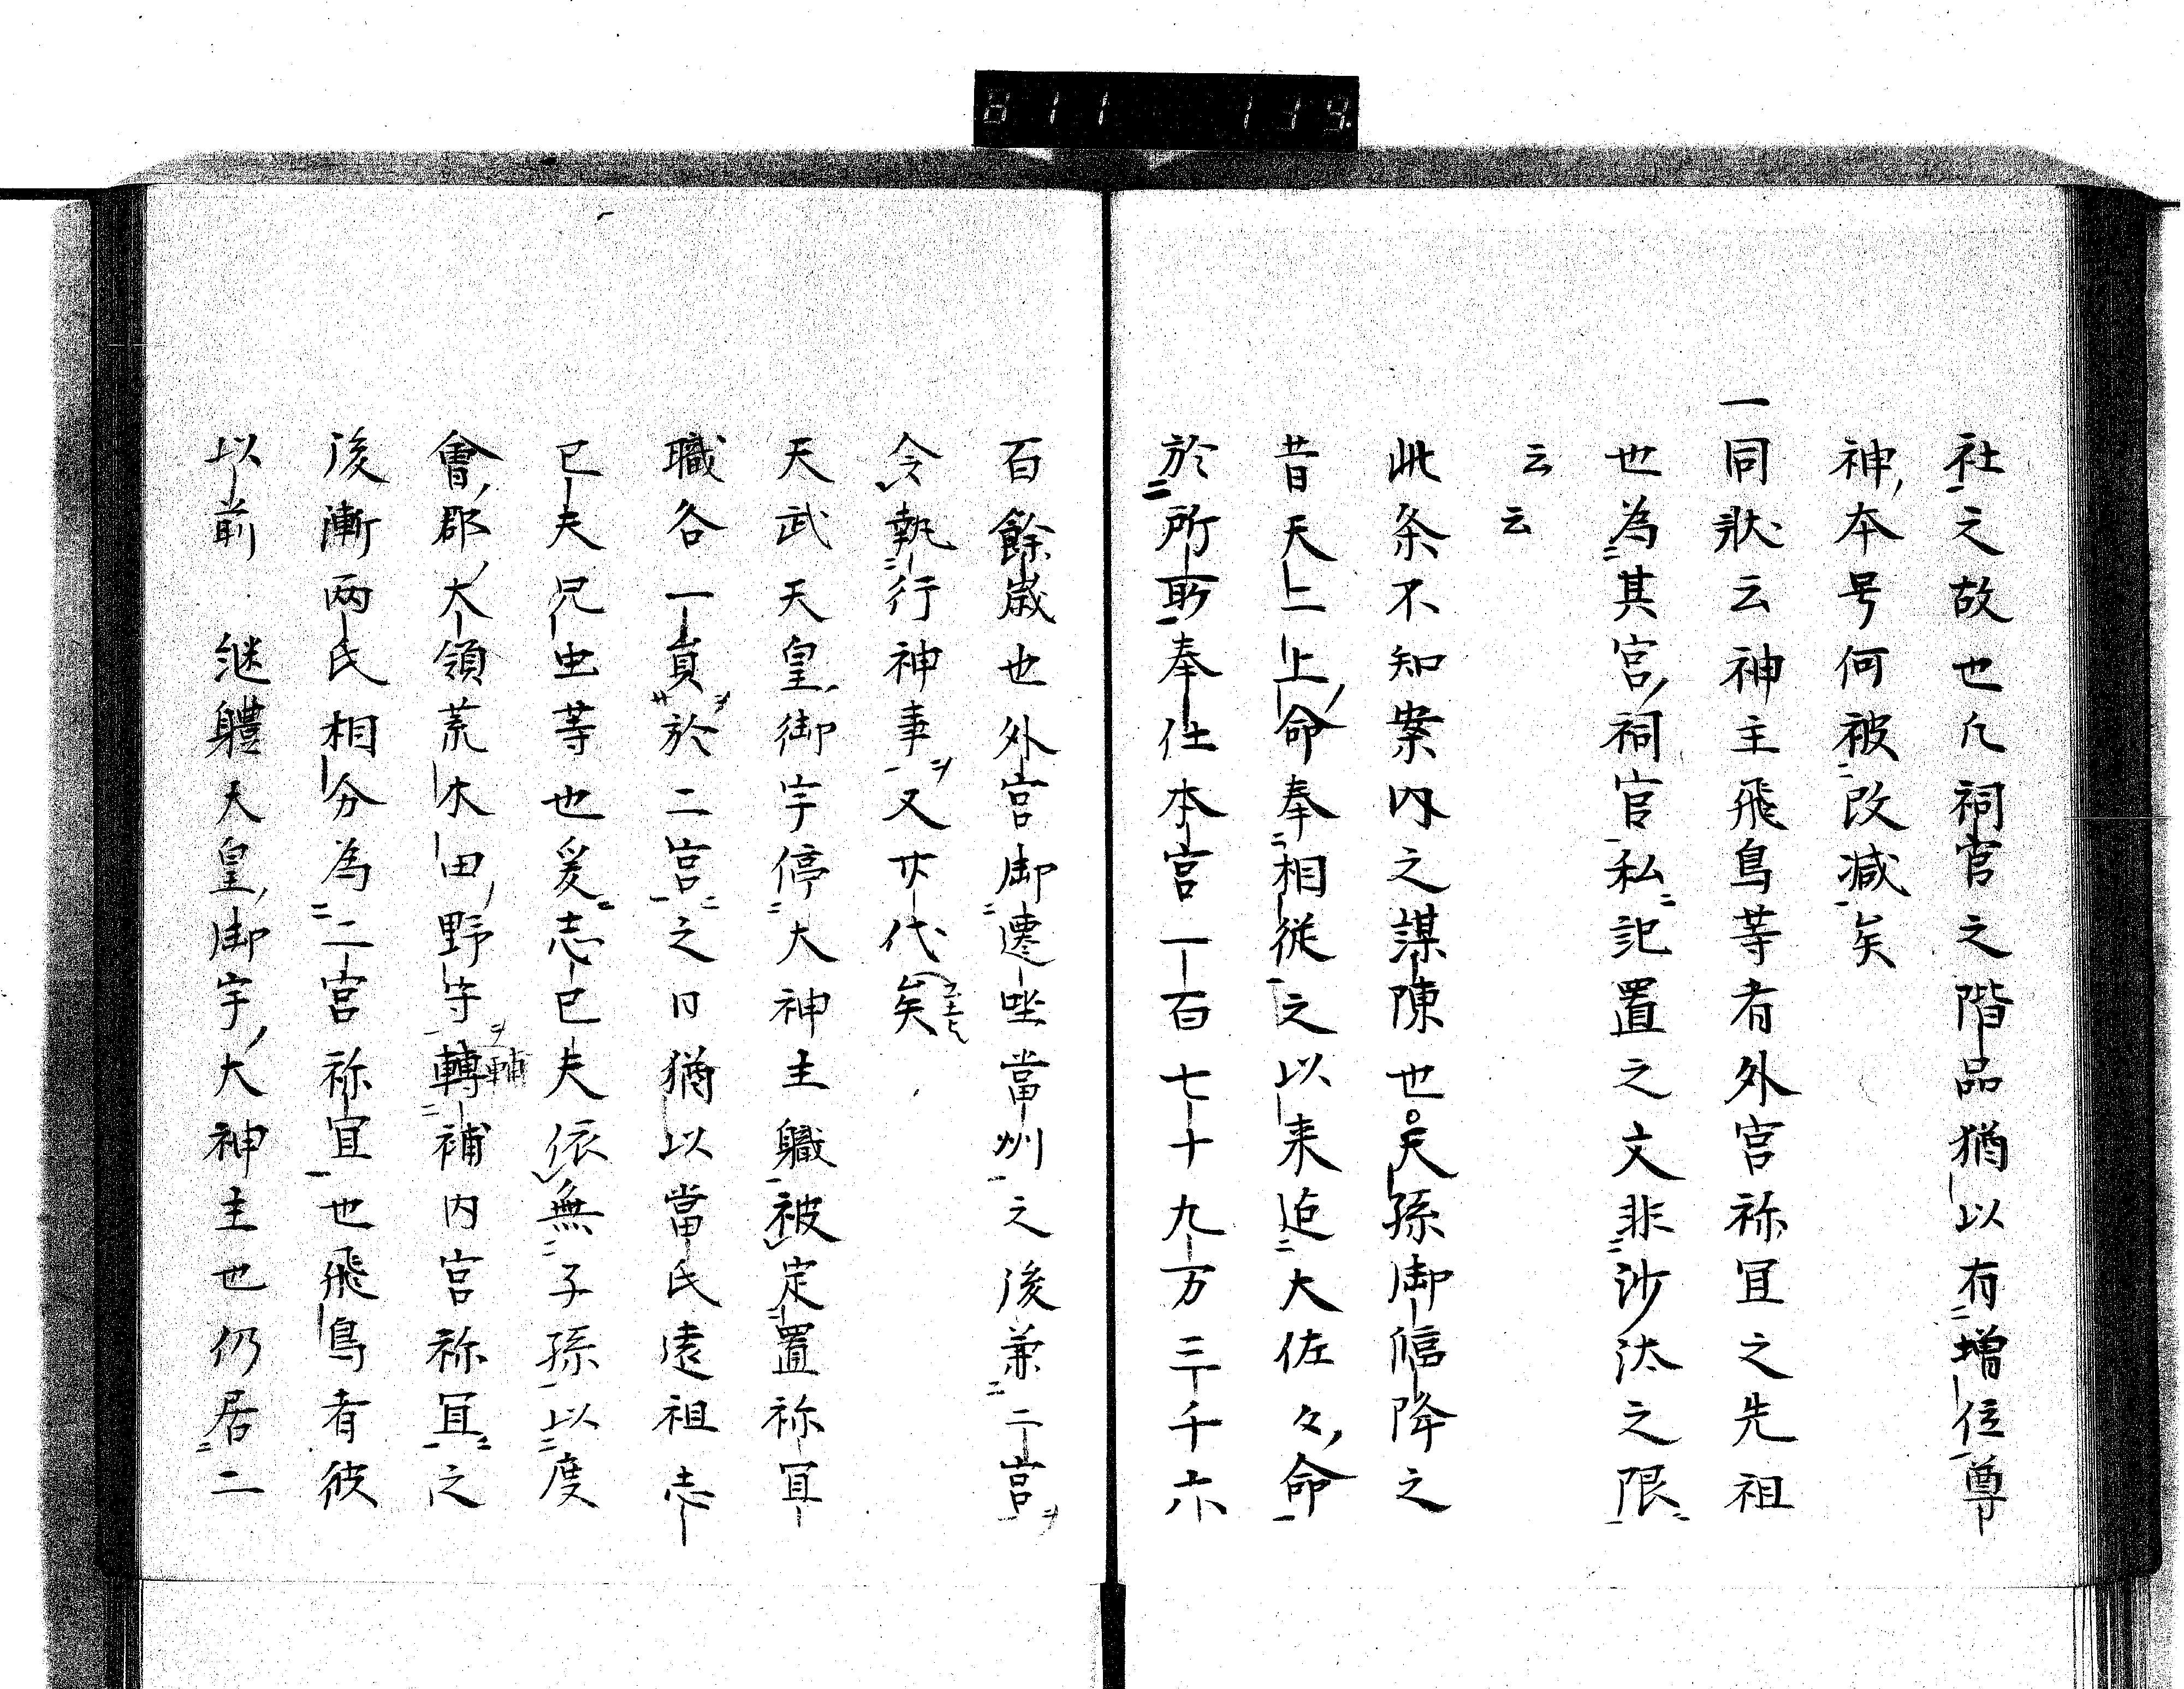 社之故也凢祠官之階品猶以有増位尊
神本号何被改減矣
一同状云神主飛鳥等者外宮祢冝之先祖
也為其宮祠官私記置之文非沙汰之限
云云
此条不知案内之謀陳也天孫御臨降之
昔天上上命奉相従之以来迄大佐々命
於所取奉仕本宮一百七十九万三千六
百餘歳也外宮御遷坐當州之後兼二宮
令執行神事又廿代矣
天武天皇御宇停大神主職被定置祢冝
職各一員於二宮之日猶以當氏遠祖志
己夫兄虫等也爰志己夫依無子孫以度
會郡大領荒木田野守轉補内宮祢冝之
後漸兩氏相分為二宮祢冝也飛鳥者彼
以前 継軆天皇御宇大神主也仍居二